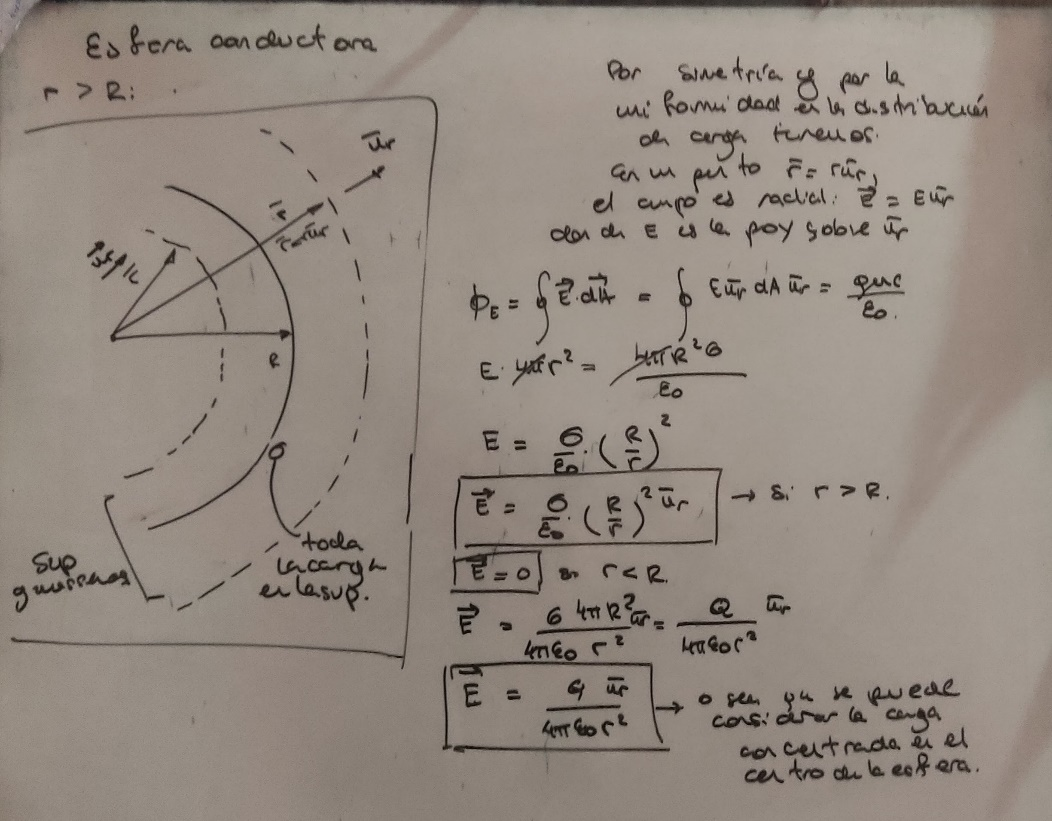 Esfera conductora
r > R:
ūr
r̄ = rūr
R
Sup
gaussianas
toda
la carga
en la sup.
Por simetría y por la
uniformidad en la distribución
de carga tenemos.
en un punto r̄ = rūr,
el campo es radial: E⃗ = Eūr
donde E es la proy sobre ūr
ϕE = ∮ E⃗ · dA⃗ = ∮ Eūr dA ūr = qenc / ε0.
E · 4π r² = 4πR²σ / ε0
E = σ/ε0 · (R/r)²
E⃗ = σ/ε0 · (R/r)² ūr → si r > R.
E⃗ = 0 si r < R.
E⃗ = σ 4πR² / 4πε0 r² ūr = Q / 4πε0r² ūr
E⃗ = q ūr / 4πε0r² → o sea que se puede
considerar la carga
concentrada en el
centro de la esfera.